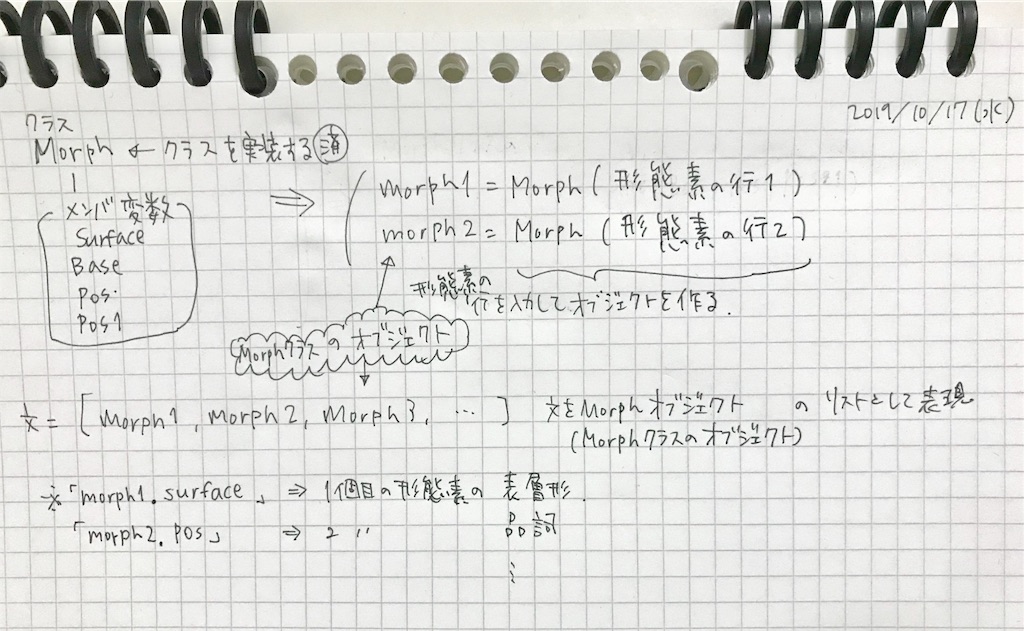 2019/10/17(水)
クラス
Morph ← クラスを実装する 済
メンバ変数
Surface
Base
Pos
Pos1
⇒
morph1 = Morph (形態素の行1)
morph2 = Morph (形態素の行2)
形態素の
行を入力してオブジェクトを作る.
Morphクラスのオブジェクト
文 = [morph1, morph2, morph3, … ] 文をMorphオブジェクト のリストとして表現
(Morphクラスのオブジェクト)
※「morph1.surface」 ⇒ 1個目の形態素の 表層形.
「morph2.pos」 ⇒ 2 〃 品詞
⋮